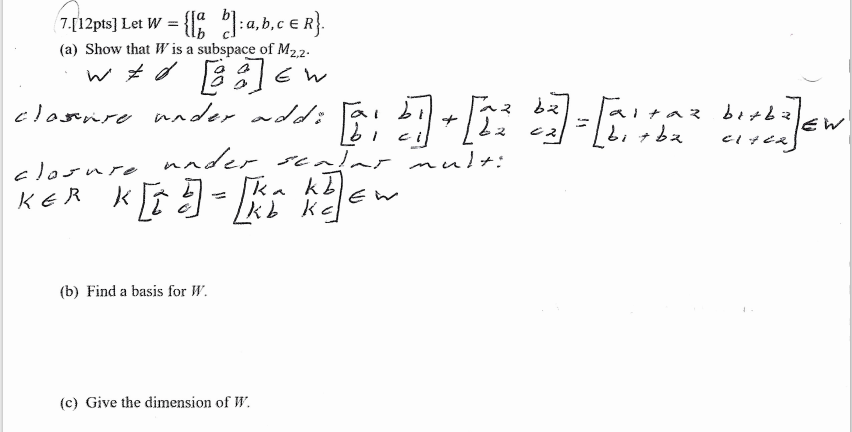 7.[12pts] Let W = {[a b; b c] : a, b, c ∈ R}.
(a) Show that W is a subspace of M₂,₂.
W ≠ ∅ [0 0; 0 0] ∈ W
closure under add: [a1 b1; b1 c1] + [a2 b2; b2 c2] = [a1+a2 b1+b2; b1+b2 c1+c2] ∈ W
closure under scalar mult:
K ∈ R K [a b; b c] = [ka kb; kb kc] ∈ W
(b) Find a basis for W.
(c) Give the dimension of W.